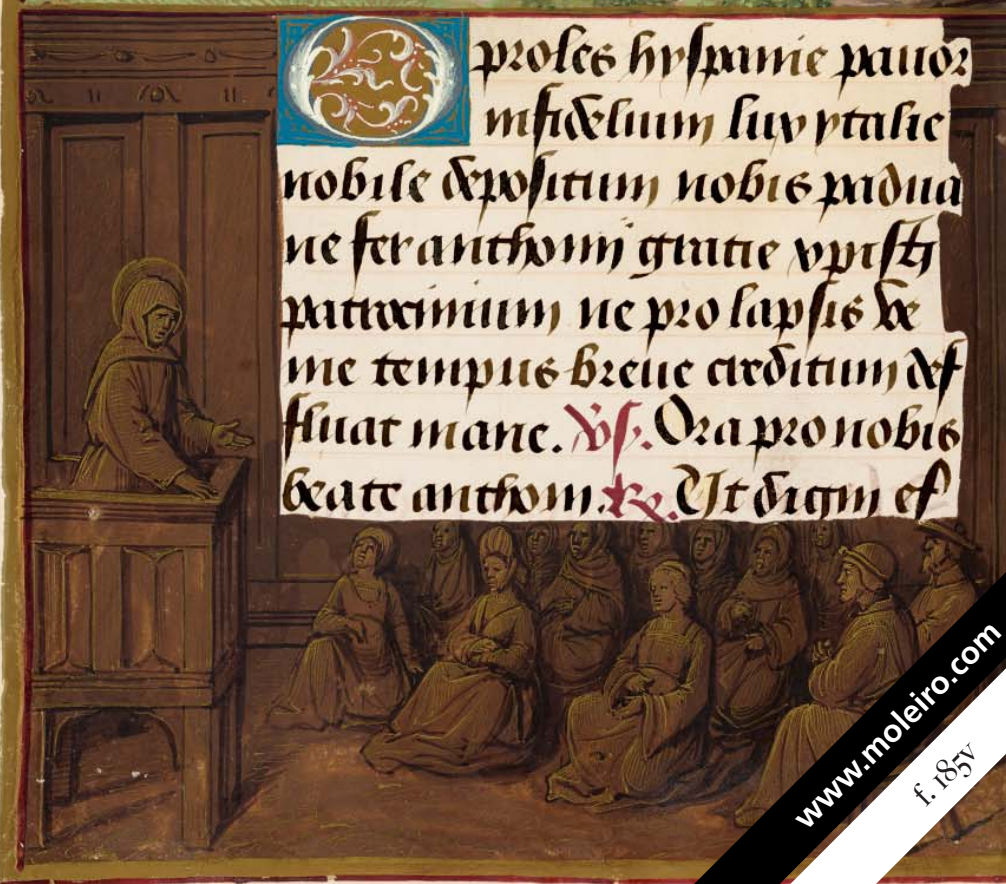 O proles hyspanie pauor
infidelium lux ytalie
nobile depositum nobis padua
ne fer anthonij gratie xpristi
patrocinium ne prolapsis ve
nie tempus breue creditum def
fluat inane. Vs. Ora pro nobis
beate anthoni. R. Ut digni ef
www.moleiro.com
f. 185v